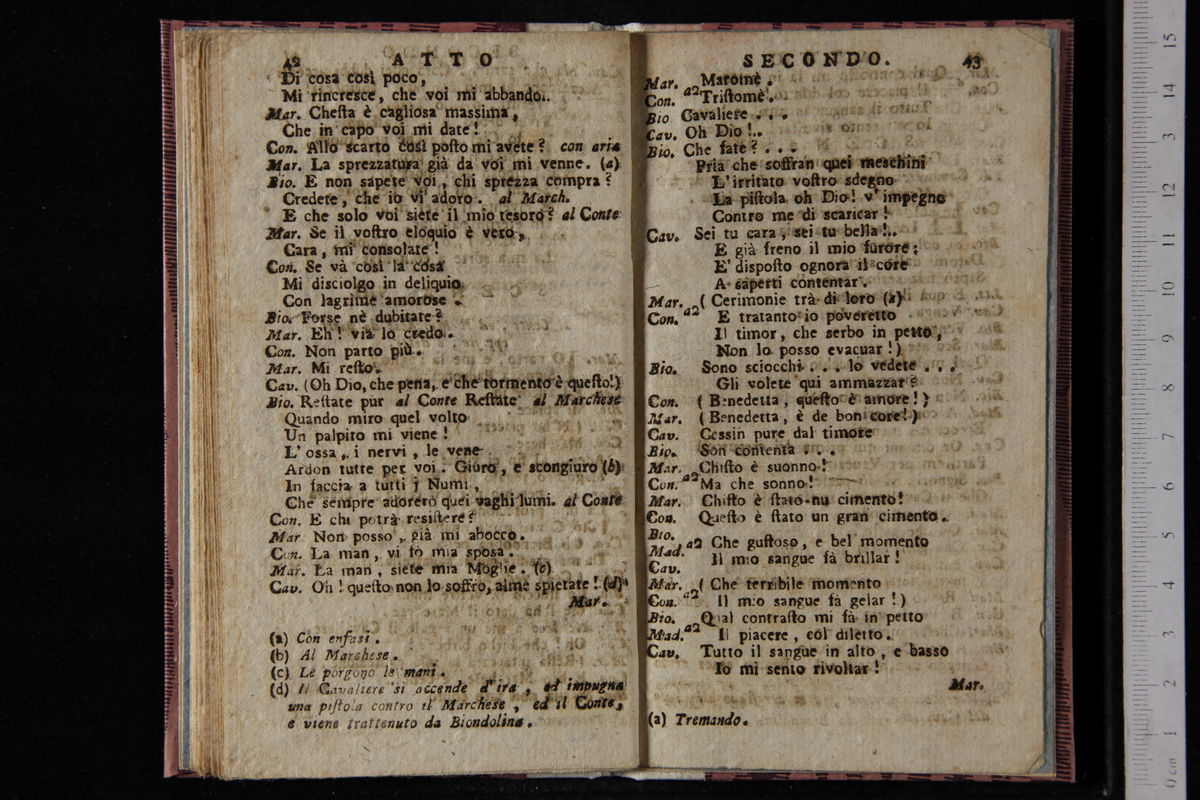 42 ATTO
Di cosa così poco,
Mi rincresce, che voi mi abbando..
Mar. Chesta è cagliosa massima,
Che in capo voi mi date!
Con. Allo scarto così posto mi avete? con aria
Mar. La sprezzatura già da voi mi venne. (a)
Bio. E non sapete voi, chi sprezza compra?
Credete, che io vi adoro. al March.
E che solo voi siete il mio tesoro? al Conte
Mar. Se il vostro eloquio è vero,
Cara, mi consolate!
Con. Se và così la cosa
Mi disciolgo in deliquio
Con lagrime amorose.
Bio. Forse nè dubitate?
Mar. Eh! via lo credo..
Con. Non parto più.
Mar. Mi resto.
Cav. (Oh Dio, che pena, e che tormento è questo!)
Bio. Restate pur al Conte Restate al Marchese
Quando miro quel volto
Un palpito mi viene!
L'ossa, i nervi, le vene
Ardon tutte per voi. Giuro, e scongiuro (b)
In faccia a tutti j Numi,
Che sempre adorerò quei vaghi lumi. al Conte
Con. E chi potrà resistere?
Mar Non posso, già mi abocco.
Con. La man, vi fò mia sposa.
Mar. La man, siete mia Moglie. (c)
Cav. Oh! questo non lo soffro, alme spietate! (d)
Mar.
(a) Con enfasi.
(b) Al Marchese.
(c) Le porgono le mani.
(d) Il Cavaliere si accende d'ira, ed impugna
una pistola contro il Marchese, ed il Conte,
e viene trattenuto da Biondolina.
SECONDO. 43
Mar. Maromè.
Con. a2 Tristomè.
Bio Cavaliere . . .
Cav. Oh Dio!..
Bio. Che fate? . . .
Pria che soffran quei meschini
L'irritato vostro sdegno
La pistola oh Dio! v'impegno
Contro me di scaricar!
Cav. Sei tu cara, sei tu bella!..
E già freno il mio furore:
E' disposto ognora il core
A saperti contentar.
Mar. (Cerimonie trà di loro (a)
Con. a2 E tratanto io poveretto
Il timor, che serbo in petto,
Non lo posso evacuar!)
Bio. Sono sciocchi . . . lo vedete . . .
Gli volete qui ammazzar?
Con. (Benedetta, questo è amore!)
Mar. (Benedetta, è de bon core!)
Cav. Cessin pure dal timore
Bio. Son contenta . . .
Mar. Chisto è suonno!
Con. a2 Ma che sonno!
Mar. Chisto è stato nu cimento!
Con. Questo è stato un gran cimento.
Bio.
Mad. a2 Che gustoso, e bel momento
Cav. Il mio sangue fà brillar!
Mar. (Che terribile momento
Con. a2 Il mio sangue fà gelar!)
Bio. Qual contrasto mi fà in petto
Mad. a2 Il piacere, col diletto.
Cav. Tutto il sangue in alto, e basso
Io mi sento rivoltar!
Mar.
(a) Tremando.
0 cm 1 2 3 4 5 6 7 8 9 10 11 12 13 14 15